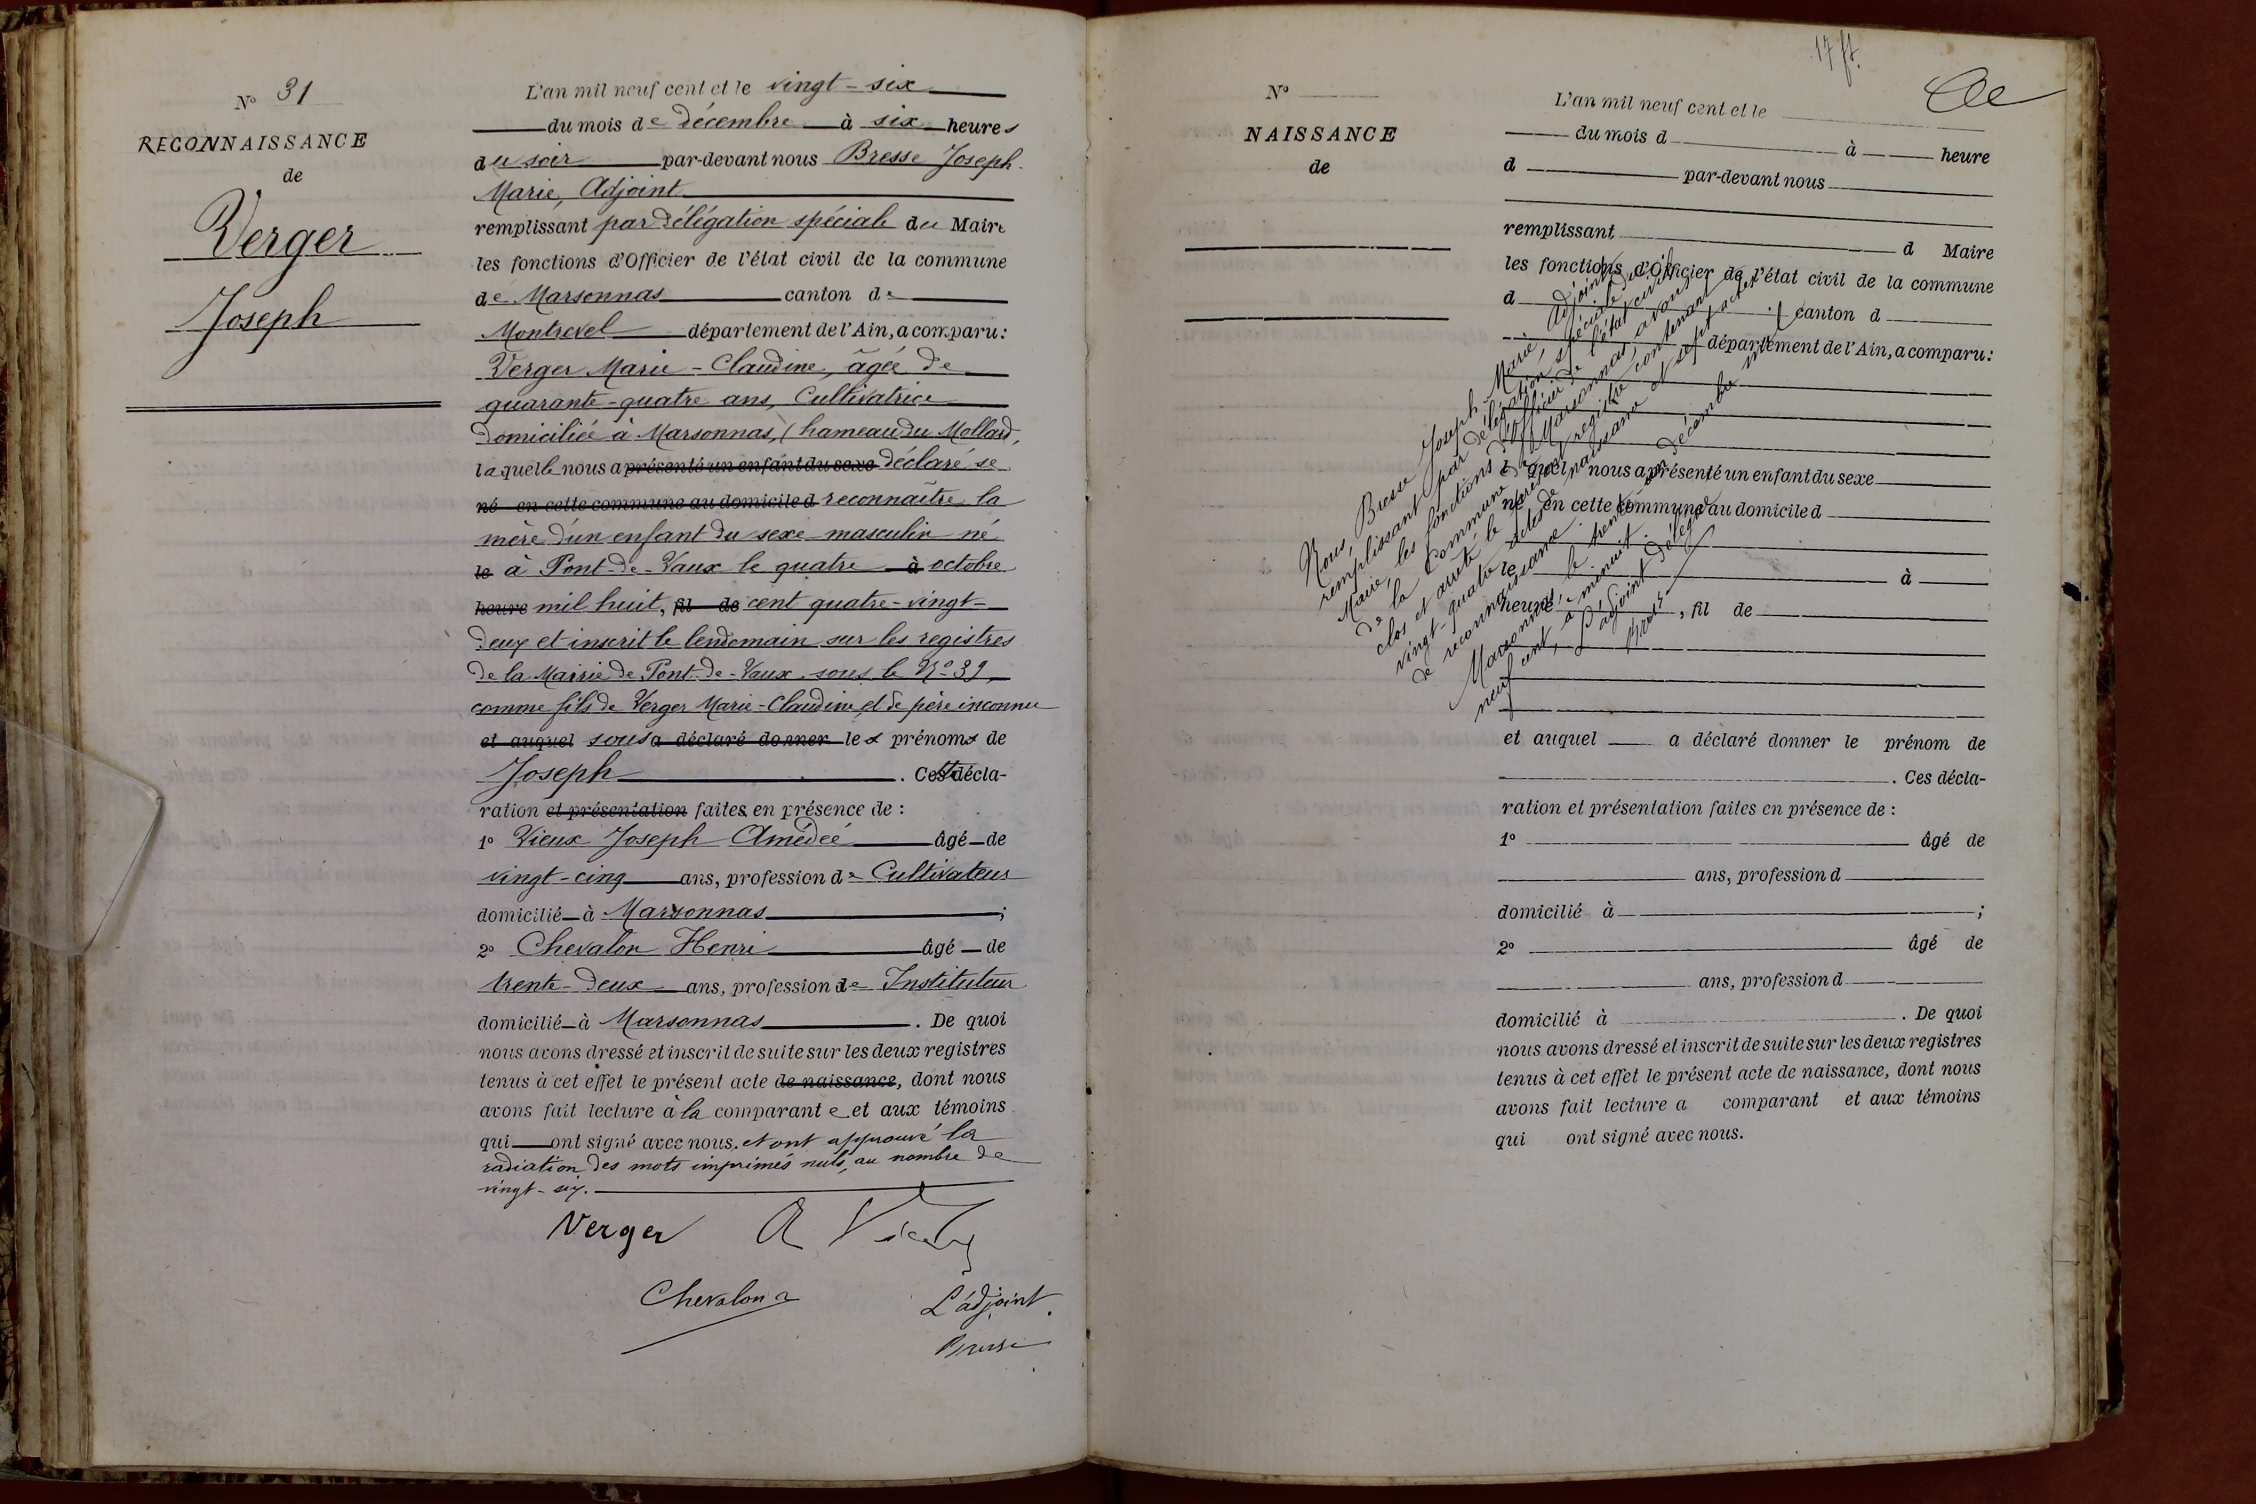 N° 31
RECONNAISSANCE
de
Verger
Joseph
L'an mil neuf cent et le vingt-six
du mois de décembre à six heures
du soir par-devant nous Bresse Joseph
Marie, Adjoint
remplissant par délégation spéciale du Maire
les fonctions d'Officier de l'état civil de la commune
de Marsonnas canton de
Montrevel département de l'Ain, a comparu :
Verger Marie-Claudine, âgée de
quarante-quatre ans, Cultivatrice
domiciliée à Marsonnas, (hameau du Mollard,
laquelle nous a présenté un enfant du sexe déclaré se
né en cette commune au domicile d reconnaître la
mère d'un enfant du sexe masculin né
le à Pont-de-Vaux le quatre à octobre
heure mil huit, fil de cent quatre-vingt-
deux et inscrit le lendemain sur les registres
de la Mairie de Pont-de-Vaux sous le N° 39,
comme fils de Verger Marie-Claudine et de père inconnu
et auquel sous a déclaré donner les prénoms de
Joseph . Cette décla-
ration et présentation faites en présence de :
1° Vieux Joseph Amédée âgé de
vingt-cinq ans, profession de Cultivateur
domicilié à Marsonnas ;
2° Chevalon Henri âgé de
trente-deux ans, profession de Instituteur
domicilié à Marsonnas . De quoi
nous avons dressé et inscrit de suite sur les deux registres
tenus à cet effet le présent acte de naissance, dont nous
avons fait lecture à la comparante et aux témoins
qui ont signé avec nous. et ont approuvé la
radiation des mots imprimés nuls, au nombre de
vingt-six.
Verger A Vieux
Chevalon
L'adjoint.
Bresse
17 ft.
N°
NAISSANCE
de
L'an mil neuf cent et le
du mois d à heure
d par-devant nous
remplissant d Maire
les fonctions d'Officier de l'état civil de la commune
d canton d
département de l'Ain, a comparu :
l quel nous a présenté un enfant du sexe
né en cette commune au domicile d
le à
heure , fil de
et auquel a déclaré donner le prénom de
. Ces décla-
ration et présentation faites en présence de :
1° âgé de
ans, profession d
domicilié à ;
2° âgé de
ans, profession d
domicilié à . De quoi
nous avons dressé et inscrit de suite sur les deux registres
tenus à cet effet le présent acte de naissance, dont nous
avons fait lecture a comparant et aux témoins
qui ont signé avec nous.
Nous, Bresse Joseph Marie, Adjoint
remplissant par délégation spéciale du
Maire, les fonctions d'officier de l'état civil
de la commune de Marsonnas, avons
clos et arrêté le présent registre contenant
vingt-quatre actes de naissance et sept actes
de reconnaissance.
Marsonnas, le trente un décembre mil
neuf cent, à minuit.
L'adjoint délégué
Bresse